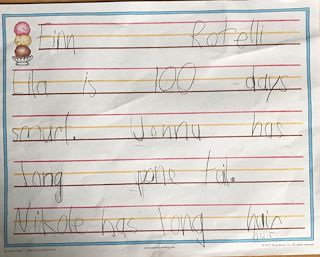 Tim Rotelli
Lila is 100 days
smurt. Janna has
long pone tail.
Nikole has long hair
has